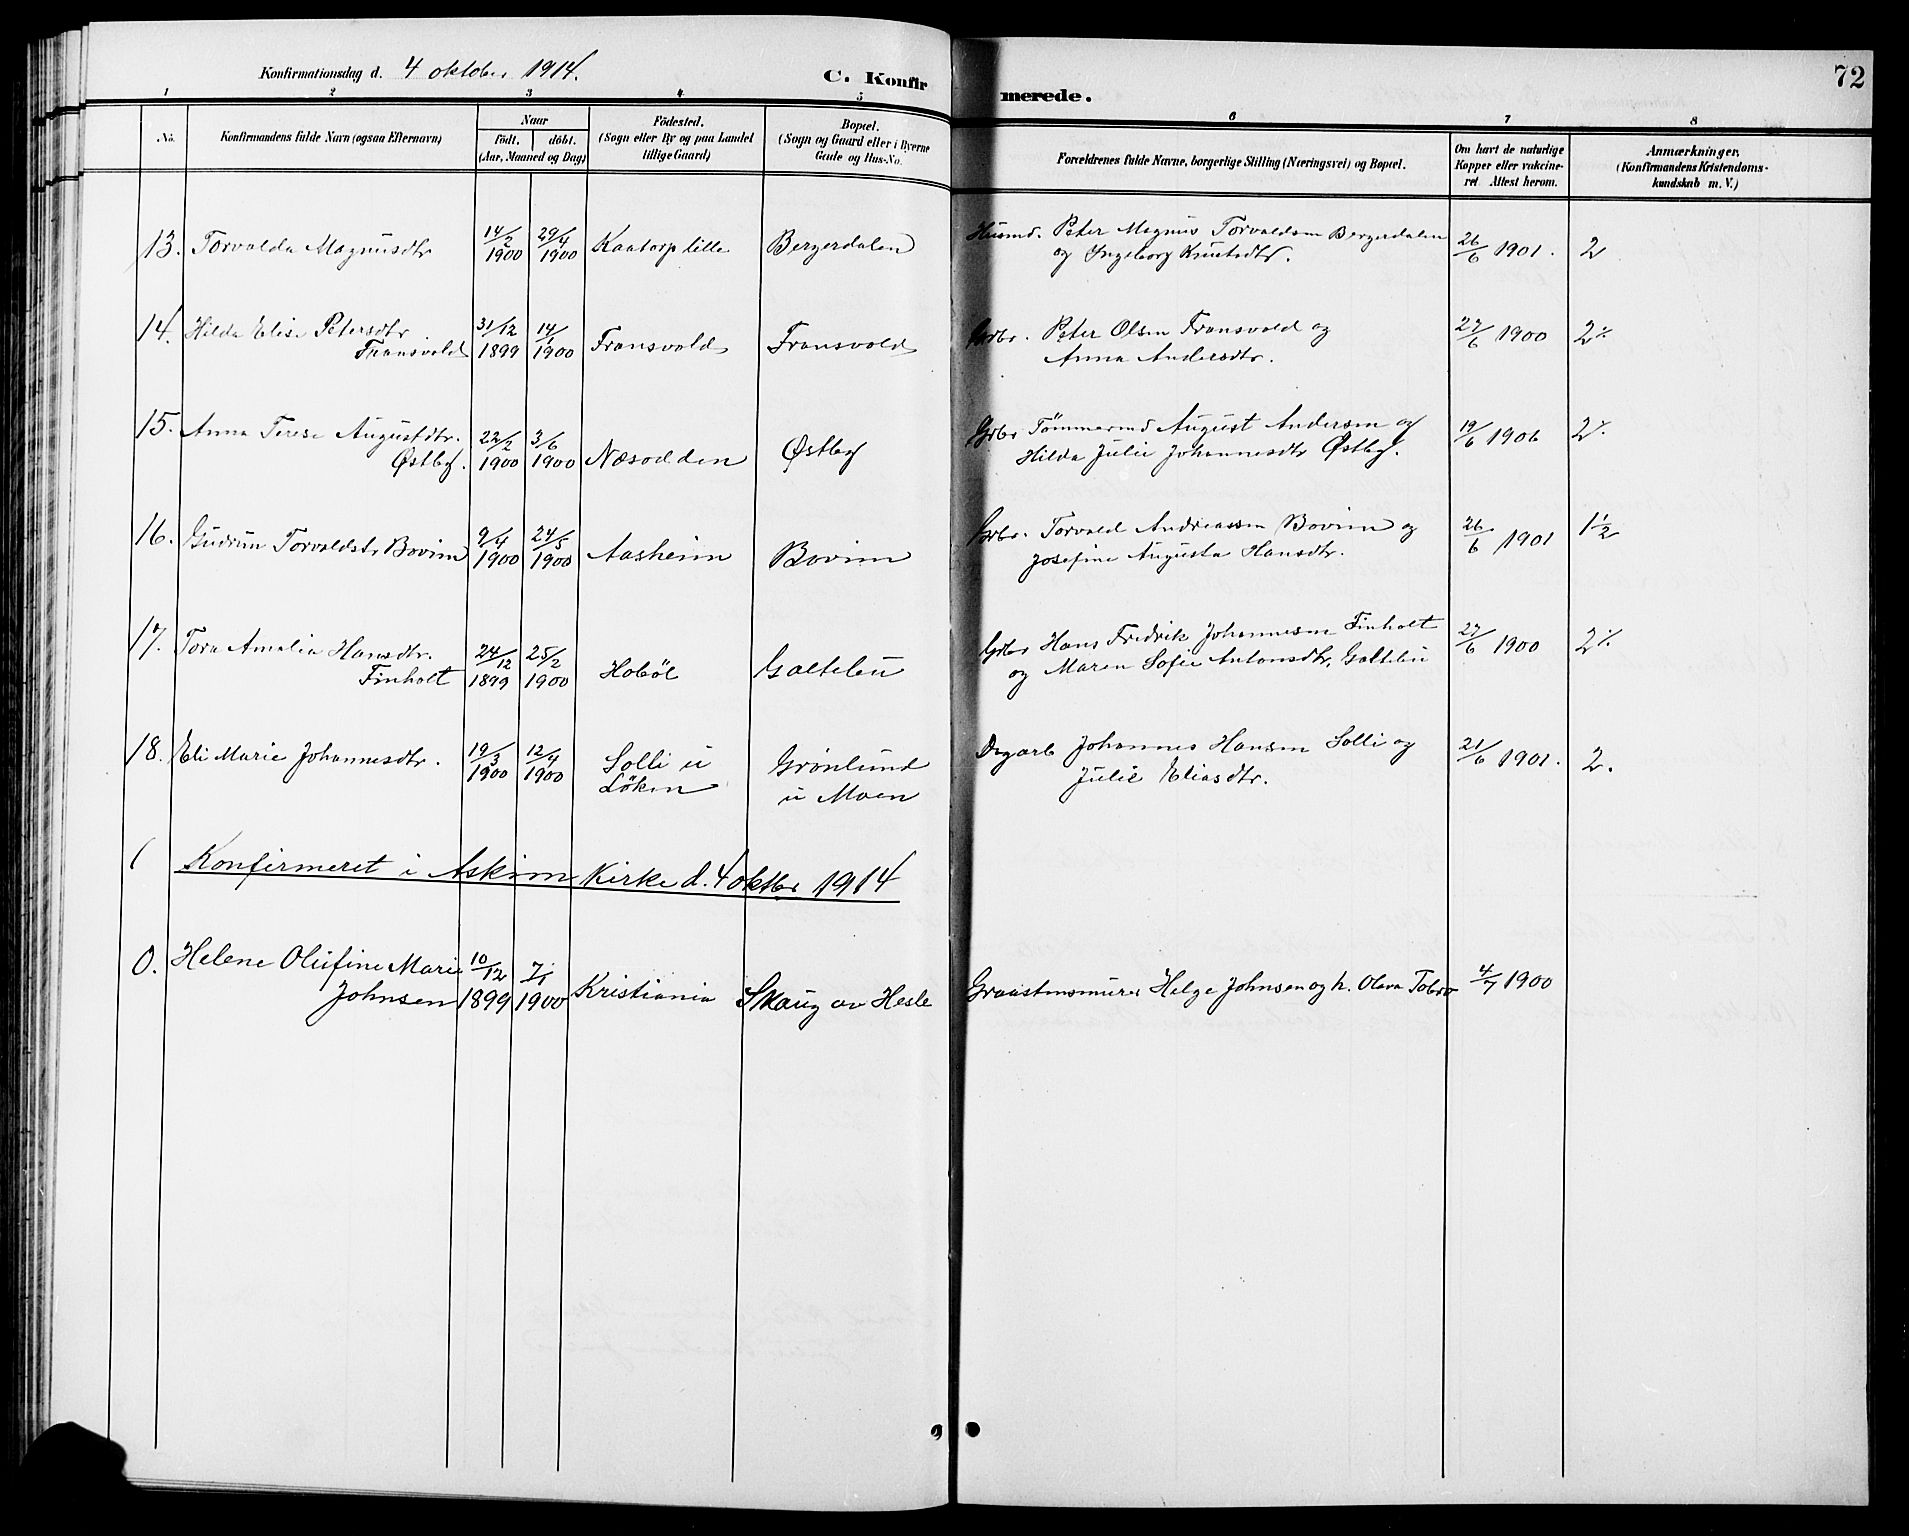 Konfirmationsdag d. 4 oktober 1914.
C. Konfirmerede.
72
1 2 3 4 5 6 7 8
No.
Konfirmandens fulde Navn (ogsaa Efternavn)
Naar
födt. döbt.
(Aar, Maaned og Dag)
Födested.
(Sogn eller By og paa Landet
tillige Gaard)
Bopæl.
(Sogn og Gaard eller i Byerne
Gade og Hus-No.
Forældrenes fulde Navne, borgerlige Stilling (Næringsvei) og Bopæl.
Om havt de naturlige
Kopper eller vakcine-
ret Attest herom.
Anmærkninger,
(Konfirmandens Kristendoms-
kundskab m. V.)
13. Torvalda Magnusdtr 14/2 1900 29/4 1900 Kaatorp lille Bergerdalen Husmd. Peter Magnus Torvaldsen Bergerdalen 26/6 1901. 2
og Ingeborg Knutsdtr.
14. Hilda Elise Petersdtr 31/12 1899 14/1 1900 Fransvold Fransvold Grbr. Peter Olsen Fransvold og 27/6 1900 2÷
Fransvold Anna Andersdtr.
15. Anna Terese Augustdtr. 22/2 1900 3/6 1900 Næsodden Østby Grbr Tømmermd August Andersen og 19/6 1906 2÷
Østby. Hilda Julie Johannesdtr Østby.
16. Gudrun Torvaldsdtr Bovim 9/4 1900 24/5 1900 Aasheim Bovim Grbr. Torvald Andreassen Bovim og 26/6 1901 1½
Josefine Augusta Hansdtr.
17. Tora Amalia Hansdtr. 24/12 1899 25/2 1900 Hobøl Galtebu Grbr Hans Fredrik Johannesen Finholt 27/6 1900 2÷
Finholt og Maren Sofie Antonsdtr, Galtebu
18. Eli Marie Johannesdtr. 19/3 1900 12/4 1900 Solli u Grönlund Dagarb Johannes Hansen Solli og 21/6 1901. 2.
Löken u Moen Julie Eliasdtr.
Konfirmeret i Askim Kirke d. 4 oktbr 1914
0. Helene Olufine Marie 10/12 7/1
Johnsen 1899 1900 Kristiania Skaug av Hesle Graastensmurer Helge Johnsen og h. Olava 4/7 1900